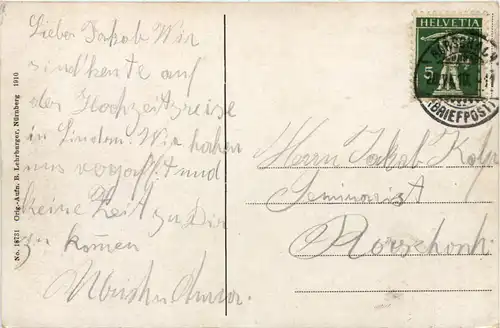 Lieber Jakob Wir
sind heute auf
der Hochzeitsreise
in Lindau. Wir haben
uns vergafft und
keine Zeit zu Dir
zu kommen
HELVETIA
5
(BRIEFPOST)
Herrn Jakob
Seminarist
Rorschach
No. 18731 Orig.-Aufn. B. Lehrburger, Nürnberg 1910